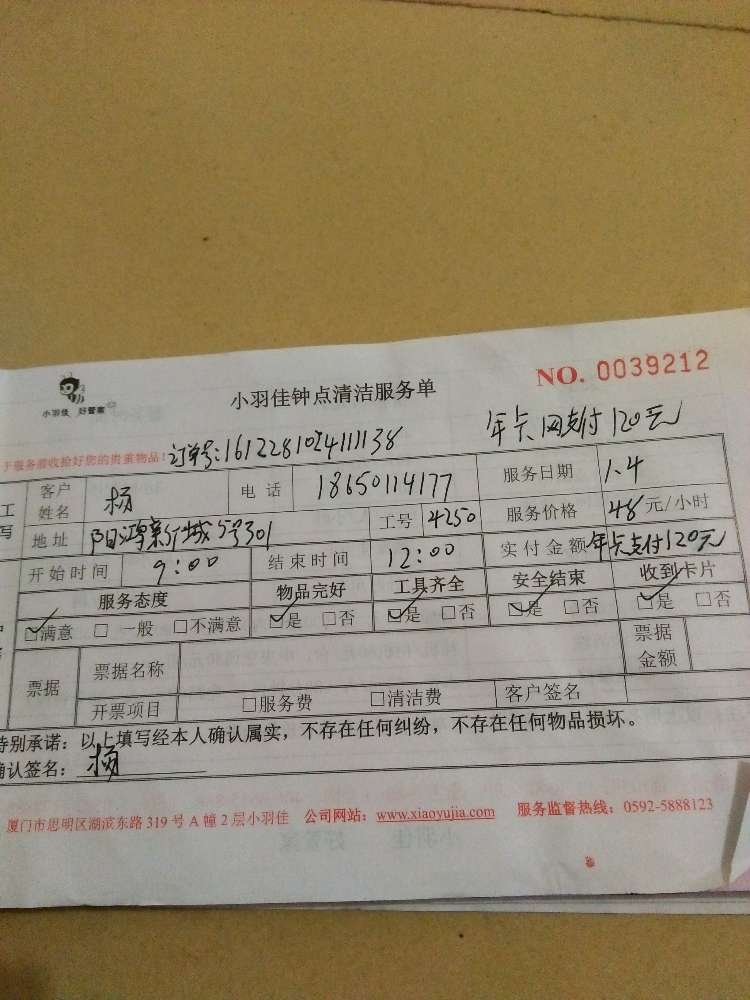 小羽佳 好管家
小羽佳钟点清洁服务单
NO. 0039212
于服务前收拾好您的贵重物品!
订单号:161228102411138
年卡网支付120元
客户姓名 杨 电话 18650114177 服务日期 1.4
地址 阳鸿新城5号301 工号 4250 服务价格 48元/小时
开始时间 9:00 结束时间 12:00 实付金额 年卡支付120元
服务态度 物品完好 工具齐全 安全结束 收到卡片
☑满意 □一般 □不满意 ☑是 □否 ☑是 □否 ☑是 □否 ☑是 □否
票据 票据名称 票据金额
开票项目 □服务费 □清洁费 客户签名
特别承诺:以上填写经本人确认属实,不存在任何纠纷,不存在任何物品损坏。
确认签名:杨
厦门市思明区湖滨东路319号A幢2层小羽佳 公司网站:www.xiaoyujia.com 服务监督热线:0592-5888123